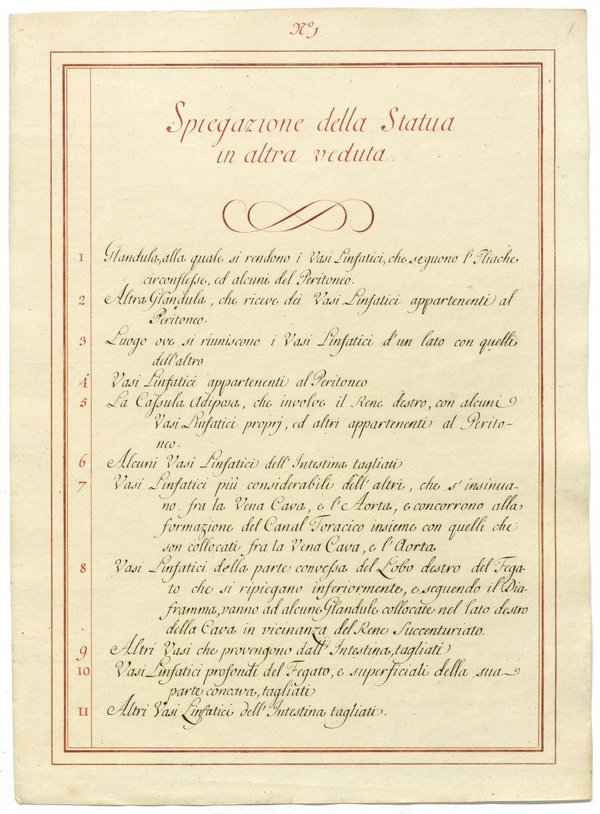 Nº 1
Spiegazione della Statua
in altra veduta.
1 Glandula, alla quale si rendono i Vasi Linfatici, che seguono l'Iliache
circonflesse, ed alcuni del Peritoneo.
2 Altra Glandula, che riceve dei Vasi Linfatici appartenenti al
Peritoneo.
3 Luogo ove si riuniscono i Vasi Linfatici d'un lato con quelli
dell'altro
4 Vasi Linfatici appartenenti al Peritoneo
5 La Cassula Adiposa, che involve il Rene destro, con alcuni
Vasi Linfatici proprj, ed altri appartenenti al Perito-
neo.
6 Alcuni Vasi Linfatici dell'Intestina tagliati
7 Vasi Linfatici più considerabili dell'altri, che s'insinua-
no fra la Vena Cava, e l'Aorta, e concorrono alla
formazione del Canal Toracico insieme con quelli che
son collocati fra la Vena Cava, e l'Aorta
8 Vasi Linfatici della parte convessa del Lobo destro del Fega-
to che si ripiegano inferiormente, e seguendo il Dia-
framma, vanno ad alcune Glandule collocate nel lato destro
della Cava in vicinanza del Rene Succenturiato.
9 Altri Vasi che provengono dall'Intestina, tagliati
10 Vasi Linfatici profondi del Fegato, e superficiali della sua
parte concava, tagliati
11 Altri Vasi Linfatici dell'Intestina tagliati.